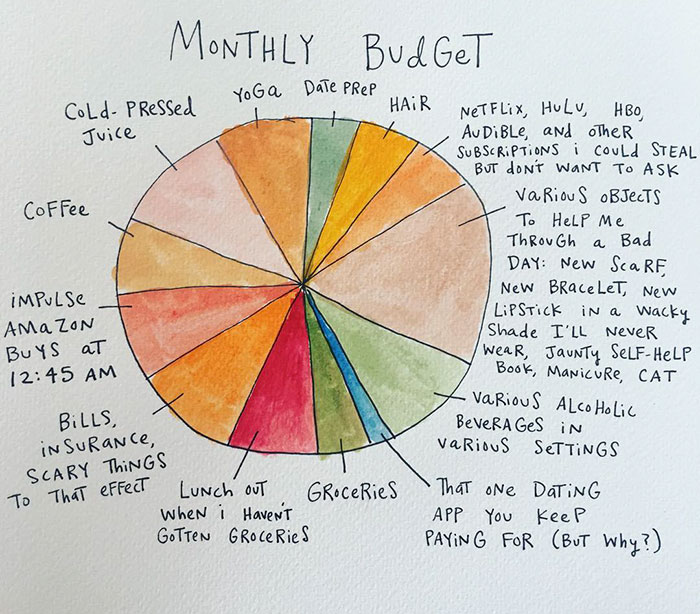 MONTHLY BUDGET
DATE PREP
HAIR
NETFLIX, HULU, HBO,
AUDIBLE, AND OTHER
SUBSCRIPTIONS I COULD STEAL
BUT DON'T WANT TO ASK
VARIOUS OBJECTS
TO HELP ME
THROUGH A BAD
DAY: NEW SCARF,
NEW BRACELET, NEW
LIPSTICK IN A WACKY
SHADE I'LL NEVER
WEAR, JAUNTY SELF-HELP
BOOK, MANICURE, CAT
VARIOUS ALCOHOLIC
BEVERAGES IN
VARIOUS SETTINGS
THAT ONE DATING
APP YOU KEEP
PAYING FOR (BUT WHY?)
GROCERIES
LUNCH OUT
WHEN I HAVEN'T
GOTTEN GROCERIES
BILLS,
INSURANCE,
SCARY THINGS
TO THAT EFFECT
IMPULSE
AMAZON
BUYS AT
12:45 AM
COFFEE
COLD-PRESSED
JUICE
YOGA